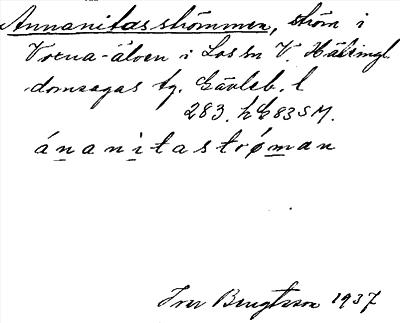 Annanitasströmmen, ström i
Voxna-älven i Los sn V. Hälsingl.
domsagas tg. Gävleb. l
283. h E83 SM.
ánanitastrǿman
Ivar Bengtsson 1937